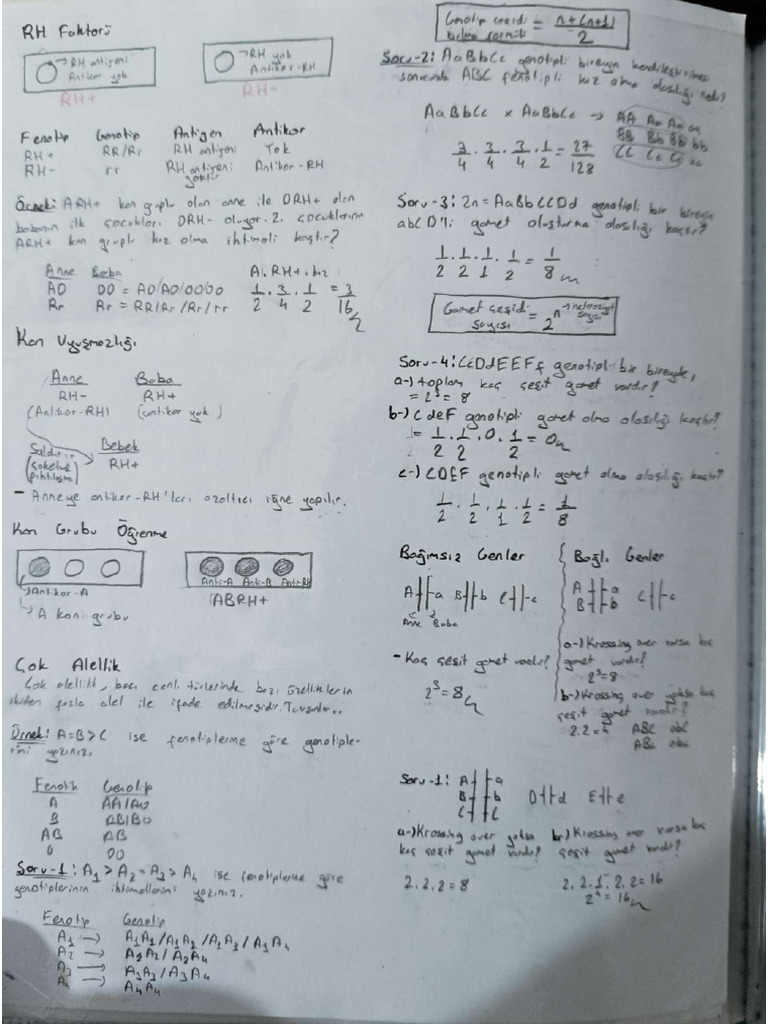 RH Faktörü
RH antijeni
Antikor yok
RH+
RH yok
Antikor-RH
RH-
Fenotip Genotip Antijen Antikor
RH+ RR/Rr RH antijeni Yok
RH- rr RH antijeni yoktur Antikor-RH
Örnek: ARH+ kan gruplu olan anne ile 0RH+ olan
babanın ilk çocukları 0RH- oluyor. 2. çocuklarının
ARH+ kan gruplu kız olma ihtimali kaçtır?
Anne Baba A.RH+.kız
AO OO = AO/AO/OO/OO 1/2 . 3/4 . 1/2 = 3/16
Rr Rr = RR/Rr/Rr/rr
Kan Uyuşmazlığı
Anne Baba
RH- RH+
(Antikor-RH) (antikor yok)
Saldırır
(çökelme
pıhtılaşma)
Bebek
RH+
- Anneye antikor-RH'ları azaltıcı iğne yapılır.
Kan Grubu Öğrenme
Antikor-A
A kan grubu
Anti-A Anti-B Anti-RH
ABRH+
Çok Alellik
Çok alellilik, bazı canlı türlerinde bazı özelliklerin
ikiden fazla alel ile ifade edilmesidir. Tavşanlar..
Örnek: A=B>C ise fenotiplerine göre genotiple-
rini yazınız.
Fenotip Genotip
A AA/AO
B BB/BO
AB AB
0 OO
Soru-1: A1 > A2 = A3 > A4 ise fenotiplerine göre
genotiplerinin ihtimallerini yazınız.
Fenotip Genotip
A1 → A1A1/A1A2/A1A3/A1A4
A2 → A2A2/A2A4
A3 → A3A3/A3A4
A4 → A4A4
Genotip çeşidi bulma formülü = n+(n+1)/2
Soru-2: AaBbCc genotipli bireyin kendileştirilmesi
sonucunda ABC fenotipli kız olma olasılığı nedir?
AaBbCc x AaBbCc → AA Aa Aa aa
BB Bb Bb bb
CC Cc Cc cc
3/4 . 3/4 . 3/4 . 1/2 = 27/128
Soru-3: 2n = AaBbCCDd genotipli bir bireyin
abCD'li gamet oluşturma olasılığı kaçtır?
1/2 . 1/2 . 1/1 . 1/2 = 1/8
Gamet çeşidi sayısı = 2^n → heterozigot sayısı
Soru-4: CcDdEEFf genotipli bir bireyde,
a-) toplam kaç çeşit gamet vardır?
= 2³ = 8
b-) CdeF genotipli gamet olma olasılığı kaçtır?
= 1/2 . 1/2 . 0 . 1/2 = 0
c-) CDEF genotipli gamet olma olasılığı kaçtır?
1/2 . 1/2 . 1/1 . 1/2 = 1/8
Bağımsız Genler
A a B b C c
Anne Baba
- Kaç çeşit gamet vardır?
2³ = 8
Bağlı Genler
A a
B b
C c
a-) Krossing over varsa kaç
gamet vardır?
2³ = 8
b-) Krossing over yoksa kaç
çeşit gamet vardır?
2.2 = 4 ABC abC
ABc abc
Soru-1: A a
B b D d E e
C C
a-) Krossing over yoksa
kaç çeşit gamet vardır?
2.2.2 = 8
b-) Krossing over varsa kaç
çeşit gamet vardır?
2.2.1.2.2 = 16
2⁴ = 16